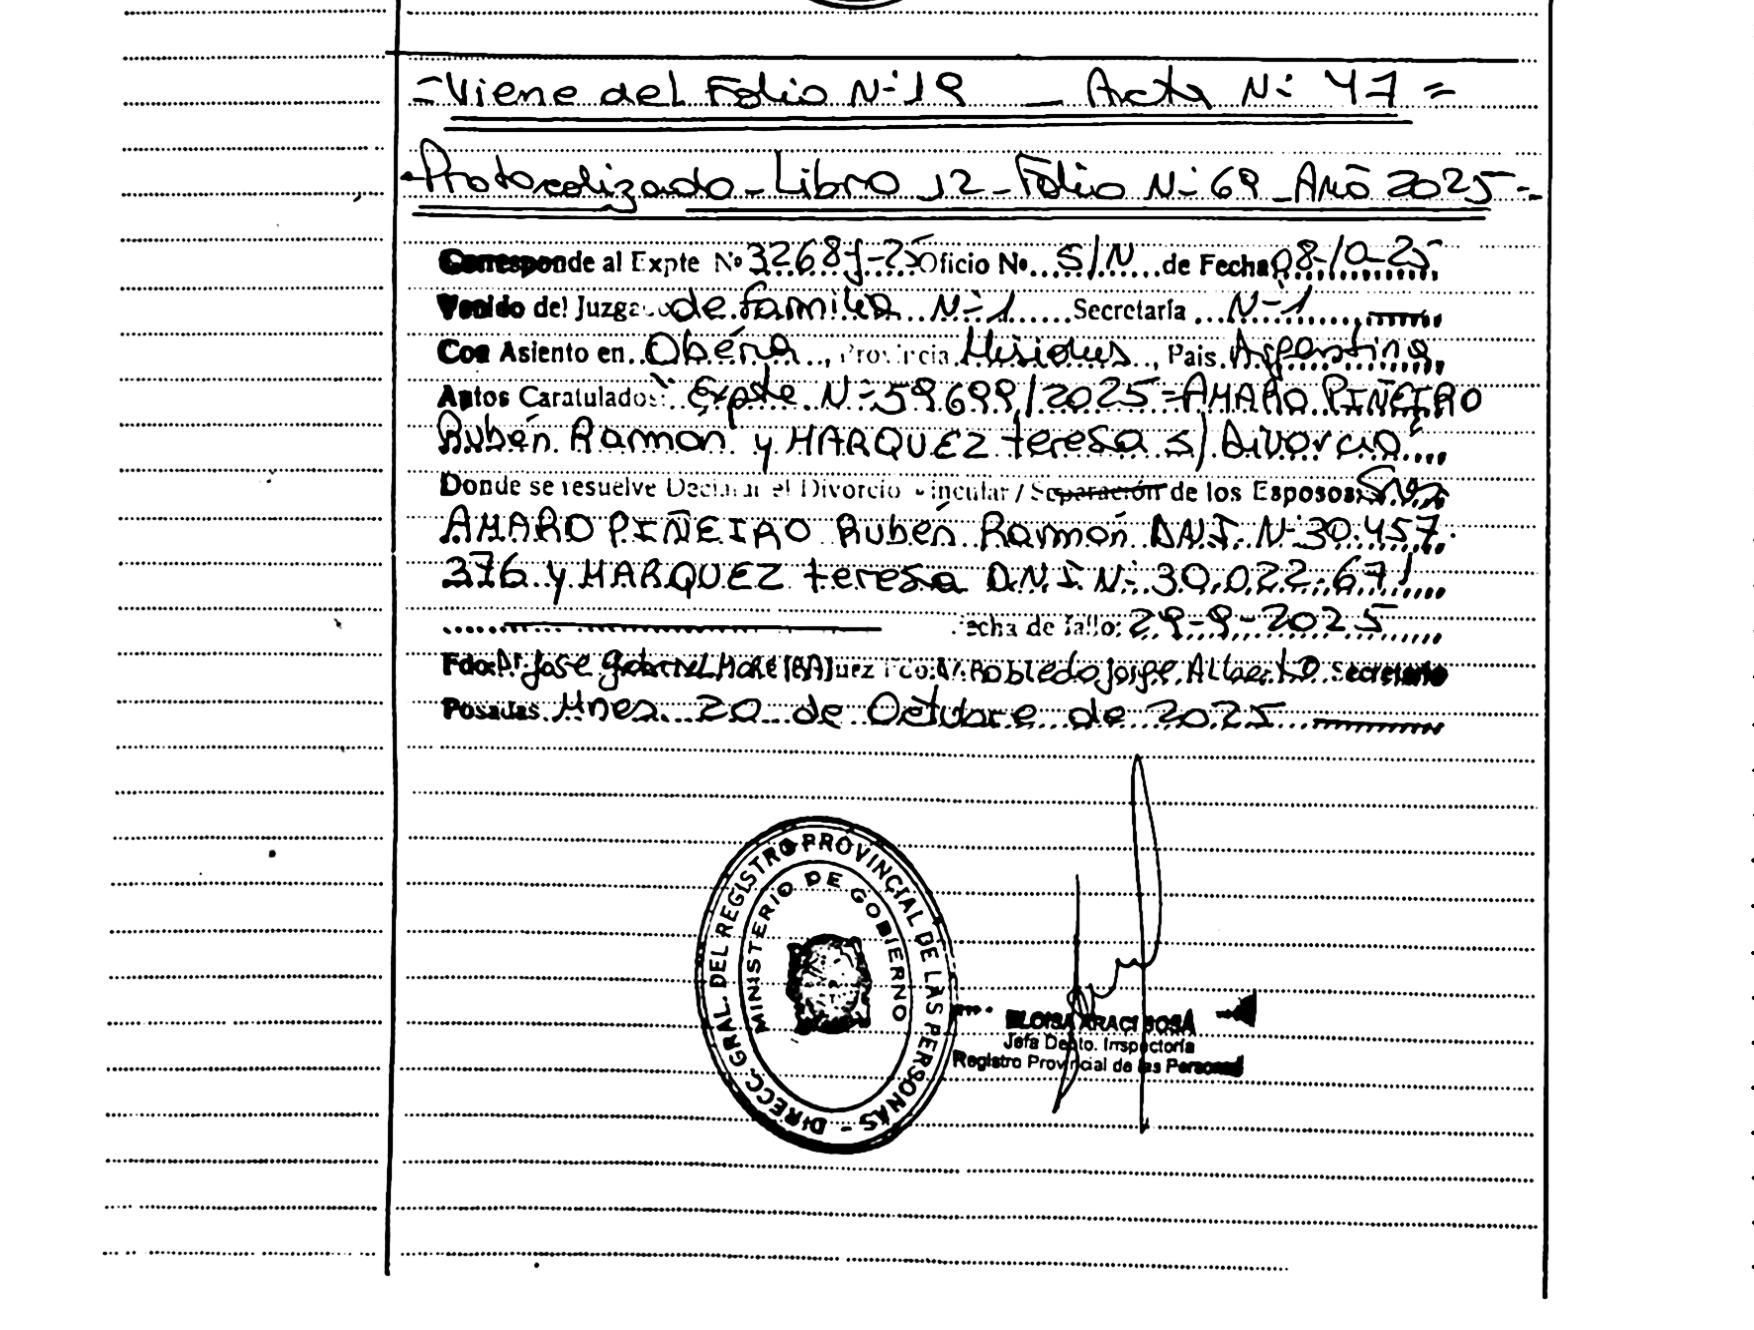 =Viene del Folio Nº 19 _ Acta Nº 47=
Protocolizado - Libro 12 - Folio Nº 69 - Año 2025=
Corresponde al Expte Nº 3268-J-25 Oficio Nº S/N de Fecha 08-10-25
Venido del Juzgado de familia Nº 1 Secretaría Nº 1
Con Asiento en Oberá, Provincia Misiones, Pais Argentina
Autos Caratulados: "Expte Nº 59.699/2025=AMARO PIÑEIRO
Rubén Ramon y MARQUEZ teresa s/ Divorcio"
Donde se resuelve Declarar el Divorcio Vincular / Separación de los Esposos: Sres
AMARO PIÑEIRO Rubén Ramón D.N.I. Nº 30.457.
376 y MARQUEZ teresa D.N.I Nº 30.022.671
Fecha de fallo: 29-9-2025
Fdo: Dr. Jose Gabriel MOREIRA Juez Robledo Jorge Alberto Secretario
Posadas Mnes. 20 de Octubre de 2025
DIRECC. GRAL. DEL REGISTRO PROVINCIAL DE LAS PERSONAS -
MINISTERIO DE GOBIERNO
ELOISA ARACI SOSA
Jefa Depto. Inspectoría
Registro Provincial de las Personas